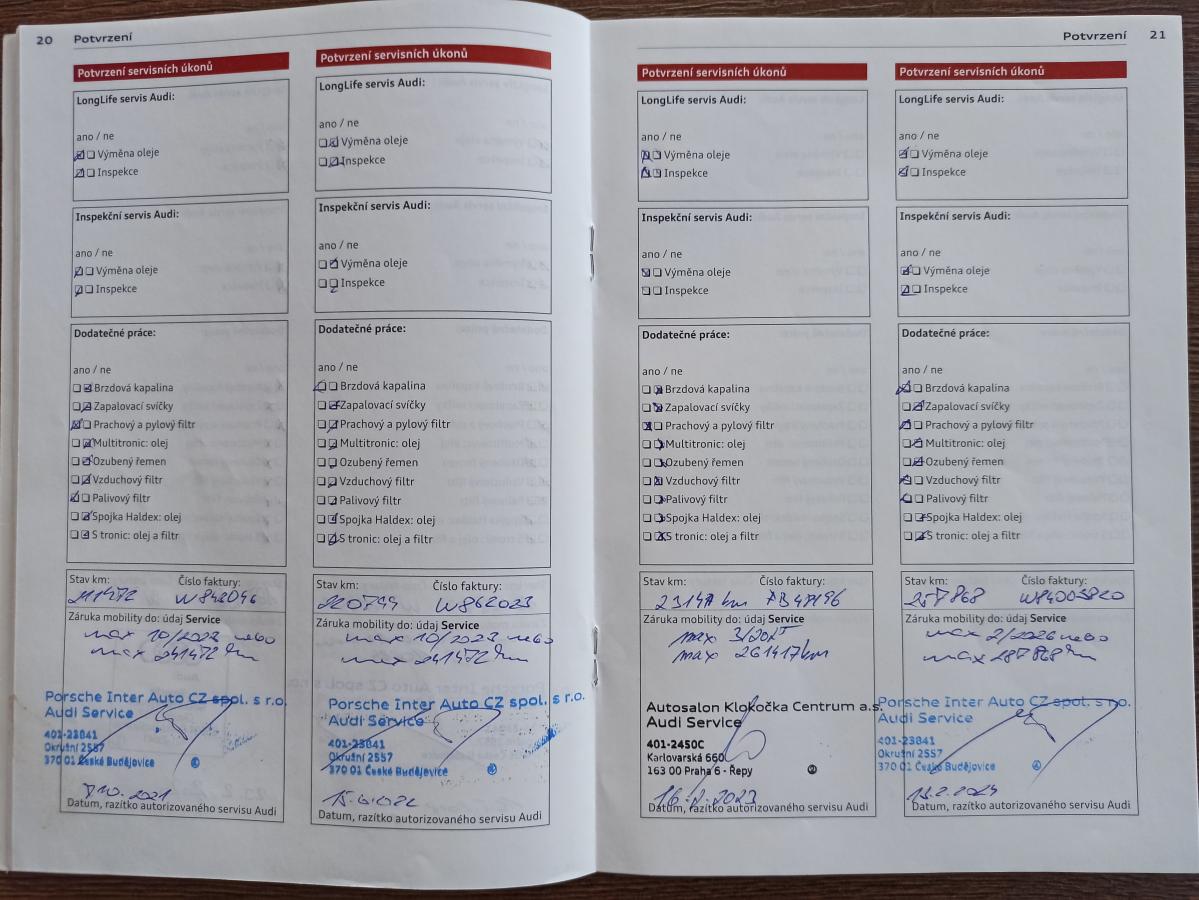 20 Potvrzení
Potvrzení servisních úkonů
LongLife servis Audi:
ano / ne
Výměna oleje
Inspekce
Inspekční servis Audi:
ano / ne
Výměna oleje
Inspekce
Dodatečné práce:
ano / ne
Brzdová kapalina
Zapalovací svíčky
Prachový a pylový filtr
Multitronic: olej
Ozubený řemen
Vzduchový filtr
Palivový filtr
Spojka Haldex: olej
S tronic: olej a filtr
Stav km: Číslo faktury:
211472 W848046
Záruka mobility do: údaj Service
max 10/2023 nebo
max 241472 km
Porsche Inter Auto CZ spol. s r.o.
Audi Service
401-23841
Okružní 2557
370 01 České Budějovice
10.2021
Datum, razítko autorizovaného servisu Audi
Potvrzení servisních úkonů
LongLife servis Audi:
ano / ne
Výměna oleje
Inspekce
Inspekční servis Audi:
ano / ne
Výměna oleje
Inspekce
Dodatečné práce:
ano / ne
Brzdová kapalina
Zapalovací svíčky
Prachový a pylový filtr
Multitronic: olej
Ozubený řemen
Vzduchový filtr
Palivový filtr
Spojka Haldex: olej
S tronic: olej a filtr
Stav km: Číslo faktury:
220744 W862023
Záruka mobility do: údaj Service
max 10/2023 nebo
max 241472 km
Porsche Inter Auto CZ spol. s r.o.
Audi Service
401-23841
Okružní 2557
370 01 České Budějovice
Datum, razítko autorizovaného servisu Audi
Potvrzení 21
Potvrzení servisních úkonů
LongLife servis Audi:
ano / ne
Výměna oleje
Inspekce
Inspekční servis Audi:
ano / ne
Výměna oleje
Inspekce
Dodatečné práce:
ano / ne
Brzdová kapalina
Zapalovací svíčky
Prachový a pylový filtr
Multitronic: olej
Ozubený řemen
Vzduchový filtr
Palivový filtr
Spojka Haldex: olej
S tronic: olej a filtr
Stav km: Číslo faktury:
km
Záruka mobility do: údaj Service
max
max 261417km
Autosalon Klokočka Centrum a.s.
Audi Service
401-2450C
Karlovarská 660
163 00 Praha 6 - Řepy
16.2.2023
Datum, razítko autorizovaného servisu Audi
Potvrzení servisních úkonů
LongLife servis Audi:
ano / ne
Výměna oleje
Inspekce
Inspekční servis Audi:
ano / ne
Výměna oleje
Inspekce
Dodatečné práce:
ano / ne
Brzdová kapalina
Zapalovací svíčky
Prachový a pylový filtr
Multitronic: olej
Ozubený řemen
Vzduchový filtr
Palivový filtr
Spojka Haldex: olej
S tronic: olej a filtr
Stav km: Číslo faktury:
257868 W84003820
Záruka mobility do: údaj Service
max 2/2026 nebo
max 287868 km
Porsche Inter Auto CZ spol. s r.o.
Audi Service
401-23841
Okružní 2557
370 01 České Budějovice
13.2.2024
Datum, razítko autorizovaného servisu Audi